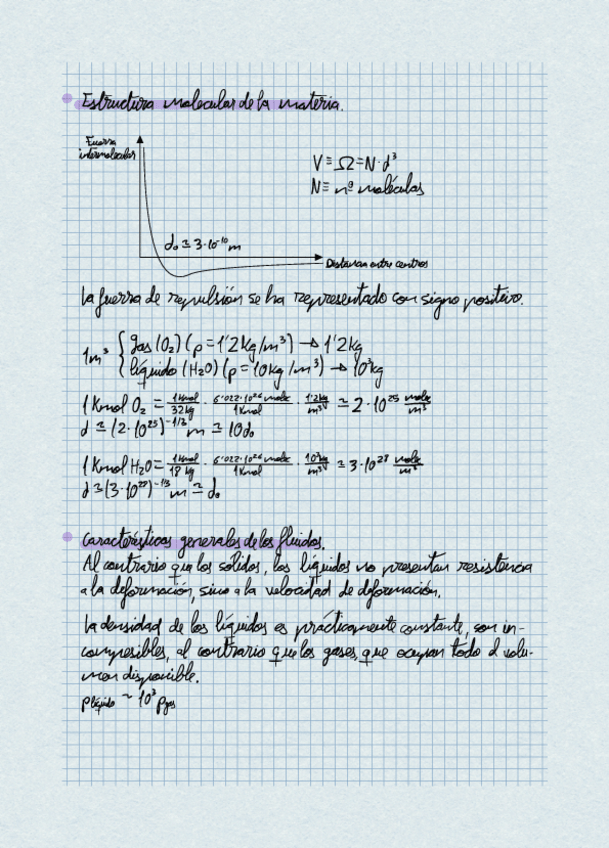 Estructura molecular de la materia.
Fuerza
intermolecular
V ≡ Ω = N·d³
N ≡ nº moléculas
d₀ ≃ 3·10⁻¹⁰ m
Distancia entre centros
La fuerza de repulsión se ha representado con signo positivo.
1m³ { gas (O₂) (ρ = 1'2kg/m³) → 1'2kg
líquido (H₂O) (ρ = 10kg/m³) → 10³kg
1 Kmol O₂ = 1Kmol/32kg · 6'022·10²⁶ molec/1Kmol · 1'2kg/m³ ≃ 2·10²⁵ molec/m³
d ≃ (2·10²⁵)^-1/3 m ≃ 10d₀
1 Kmol H₂O = 1Kmol/18kg · 6'022·10²⁶ molec/1Kmol · 10³kg/m³ ≃ 3·10²⁸ molec/m³
d ≃ (3·10²⁸)^-1/3 m ≃ d₀
Características generales de los fluidos.
Al contrario que los sólidos, los líquidos no presentan resistencia
a la deformación, sino a la velocidad de deformación.
La densidad de los líquidos es prácticamente constante, son in-
compresibles, al contrario que los gases, que ocupan todo el volu-
men disponible.
ρ líquido ~ 10³ ρgas